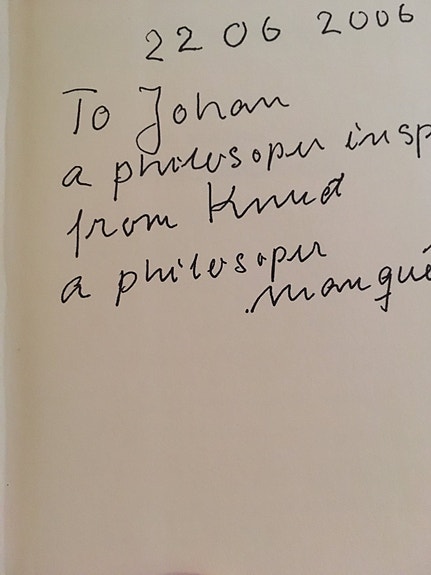 22 06 2006
To Johan
a philosoper insp
from Knud
a philosoper
manqué